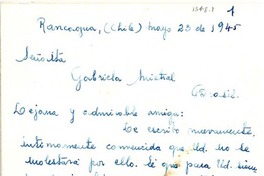 1543.1 1
Rancagua, (Chile) mayo 23 de 1945
Señorita
Gabriela Mistral
Brasil.
Lejana y admirable amiga:
Le escribo nuevamente,
íntimamente convencida que Ud. no se
molestará por ello. Sé que para Ud. siem